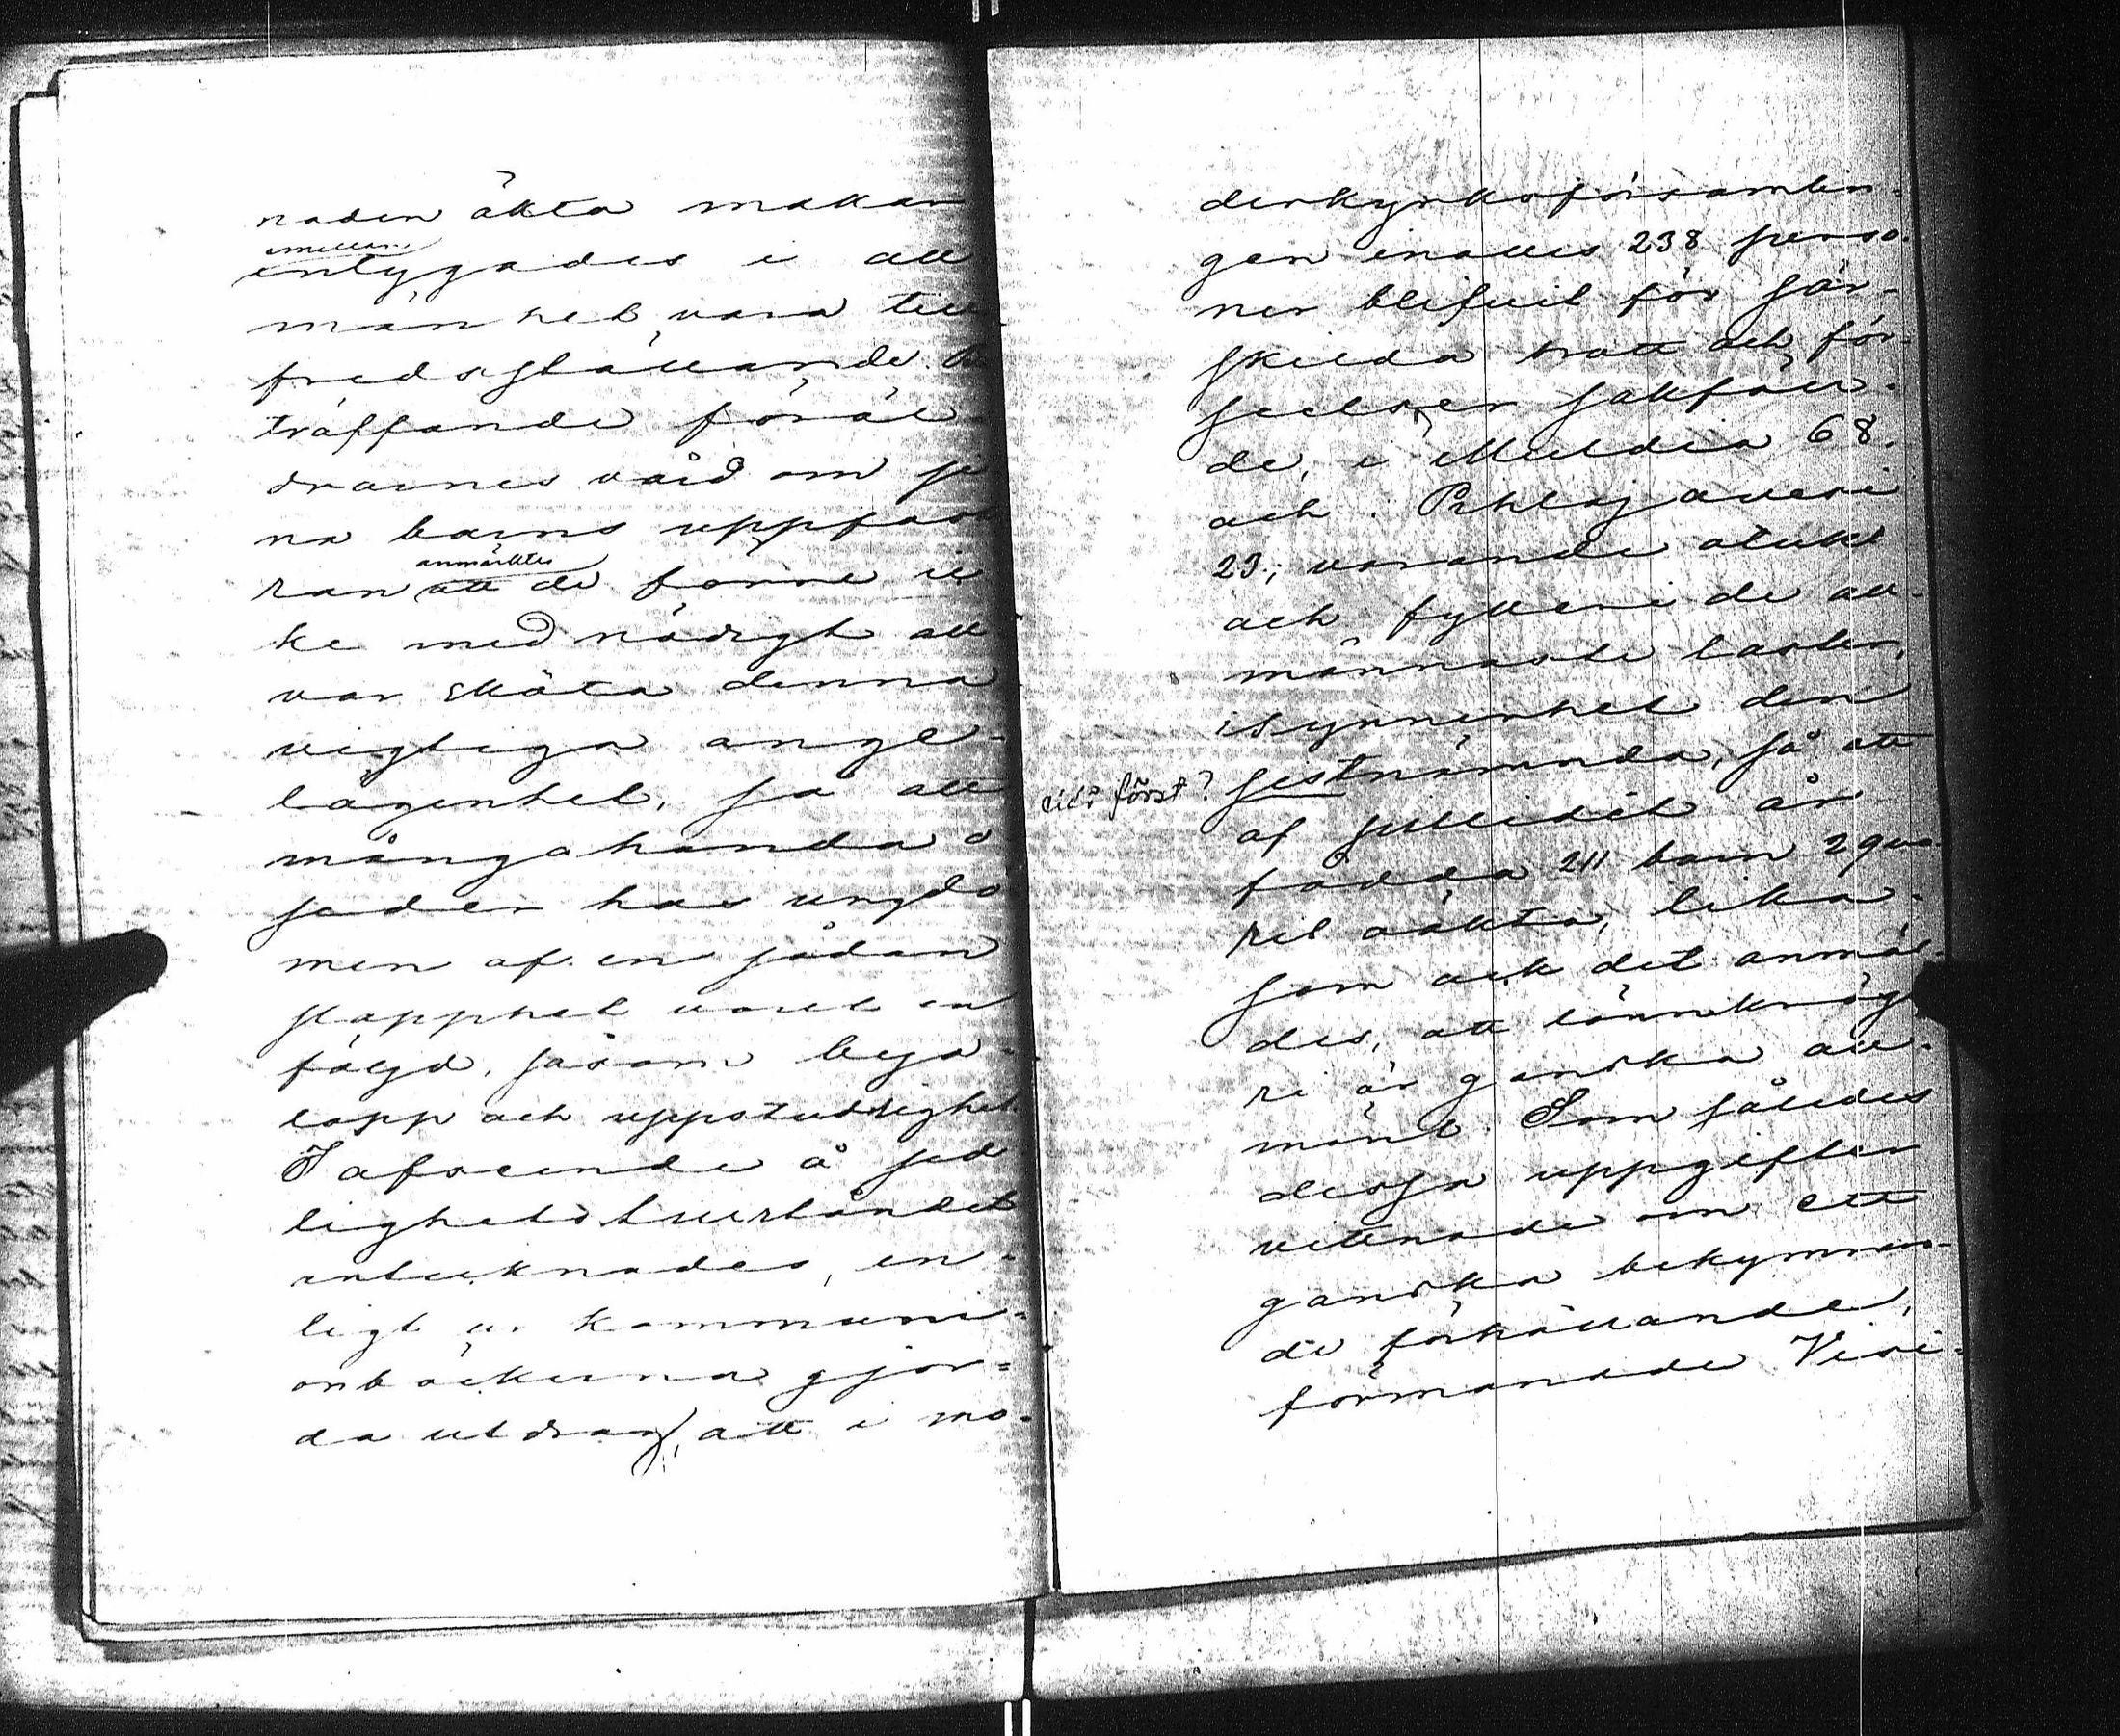 naden äkta makar
emellan
intygades i all
mänhet vara till
fredsställande. Be
träffande föräl
drarnes vård om si
na barns uppfost
anmärktes
ran att de förre ic
ke med nödigt all
var sköta denna
vigtiga ange-
lägenhet, så att
mångahanda o
seder hos ungdo
men af en sådan
slapphet varit en
följd, såsom lega-
lopp och uppstudsighet.
I afseende å sed
lighetstillståndet
antecknades, en-
ligt ur kommuni-
onböckerna gjor-
da utdrag, att i mo-
derkyrkoförsamlin-
gen inalles 238 perso-
ner blifvit för sär-
skilda brott och för-
seelser sakfäll-
de, i Muldia 68.
och Pihlajaveri
23; varande otukt
och fylleri de all-
männaste laster,
isynnerhet den
eller först? sistnämnda, så att
af sednaste år
födda 211 barn 29 va-
rit oäkta, lika-
som ock det anmäl-
des, att lönnkröge-
ri är ganska all-
mänt. Som således
dessa uppgifter
vittnade om ett
ganska bekymran-
de förhållande,
förmanade Visi-